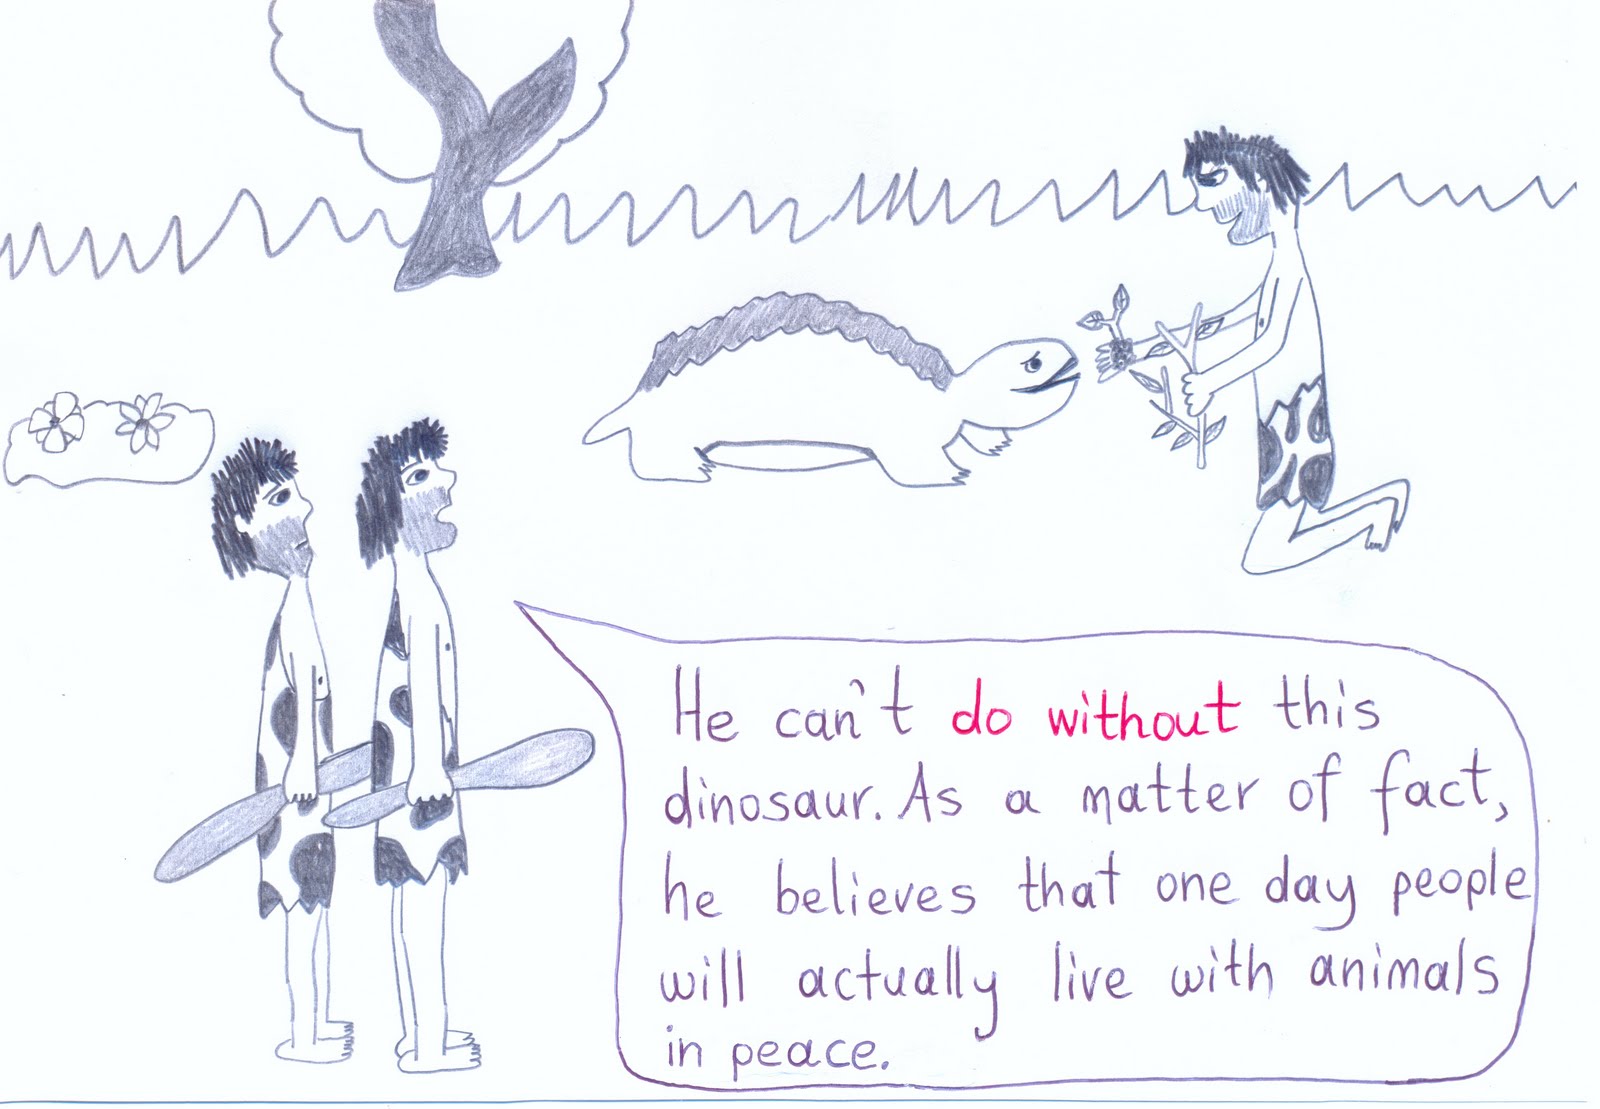 He can't do without this
dinosaur. As a matter of fact,
he believes that one day people
will actually live with animals
in peace.